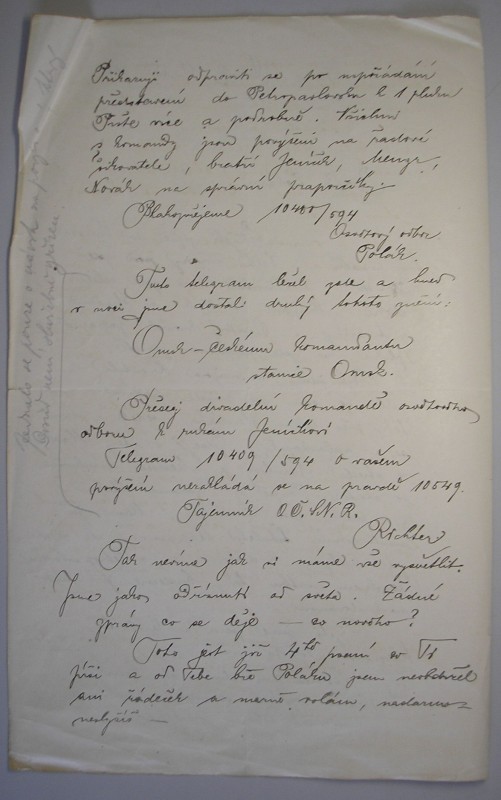 Přikazuji odpraviti se po uspořádání
představení do Petropavlovsku k 1 pluku
Pište více a podrobně. Všichni
s komandy jsou povýšeni na řadové
bratři Jeníček, Mengr,
Novák na správní praporčíky.
Blahopřejeme 10409/594
Osvětový odbor
Polák.
Tento telegram ležel zde a hned
v noci jsme dostali druhý tohoto znění:
Omsk – Českému komandantu
stanice Omsk.
Předej divadelní komandě osvětového
odboru k rukám Jeníčkovi
Telegram 10409/594 o vašem
povýšení nezakládá se na pravdě 10549.
Tajemník O.Č.S.N.R.
Richter
Tak nevíme jak si máme vše vysvětlit.
Jsme jako odříznuti od světa. Žádné
zprávy co se děje — co nového?
Toto jest již 4té psaní co Ti
píši a od Tebe bře Poláku jsem neobdržel
ani řádeček a marně volám, nadarmo –
neslyšíš —